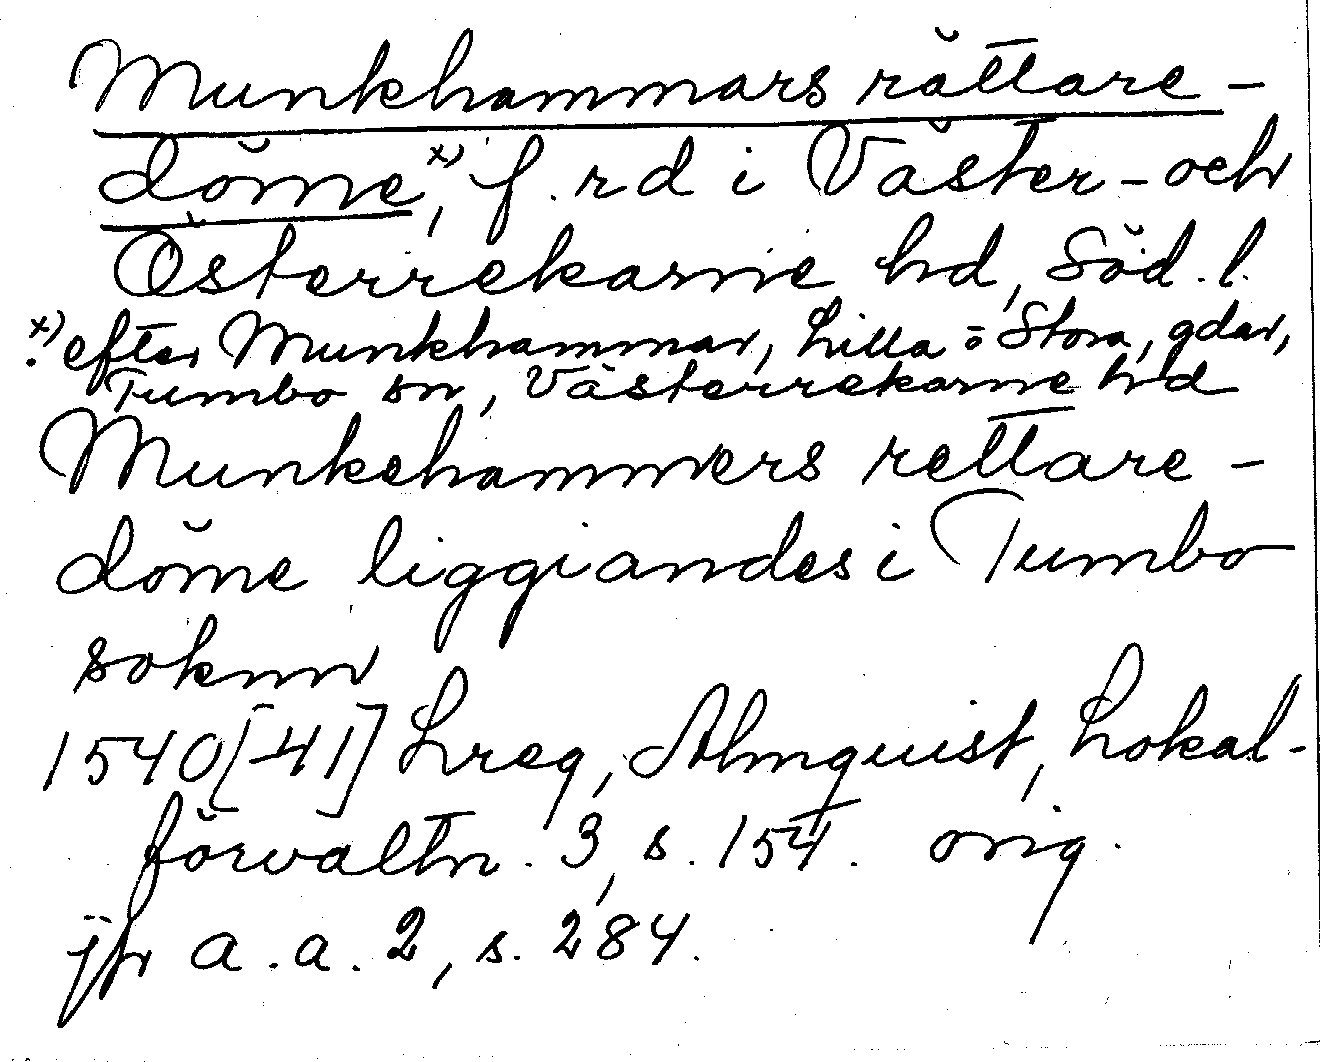 Munkhammars rättare-
döme,x) f. rd i Väster- och
Österrekarne hd, Söd. l.
x) efter Munkhammar, Lilla o Stora, gdar,
Tumbo sn, Västerrekarne hd
Munkehammers rettare-
döme liggiandes i Tumbo
soknn
1540[-41] Lreg, Almquist, Lokal-
förvaltn. 3, s. 154. orig.
jfr a.a. 2, s. 284.